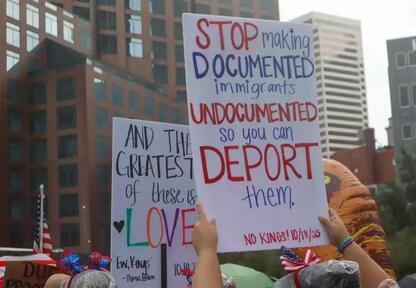 STOP making
DOCUMENTED
immigrants
UNDOCUMENTED
so you can
DEPORT
them.
NO KINGS! 10/18/25
AND THE
GREATEST
of these is
LOVE
"EW, KINGS"
DUE